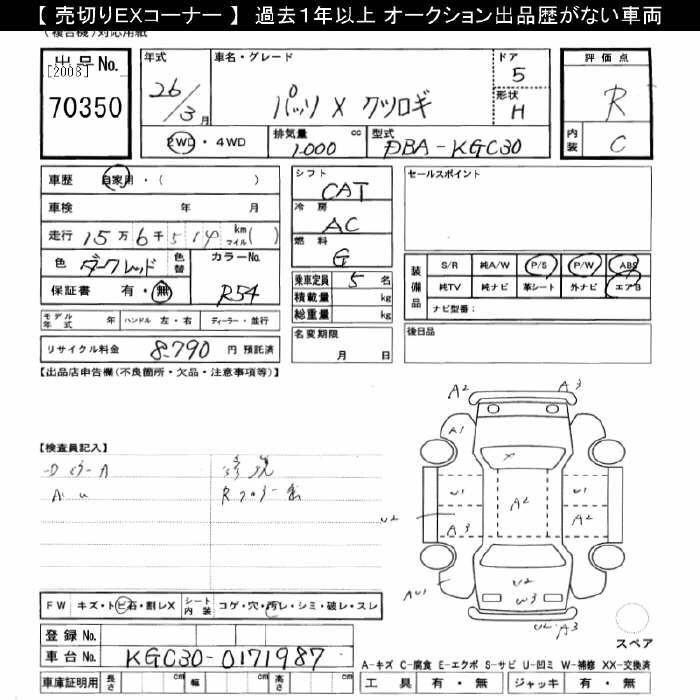 【 売切りEXコーナー 】 過去1年以上 オークション出品歴がない車両
(複合機)対応用紙
出品No.
[2008]
70350
年式
26/3月
車名・グレード
パッソ X クツロギ
ドア
5
形状
H
評価点
R
内装
C
2WD・4WD
排気量 cc
1000
型式
DBA-KGC30
車歴 自家用・( )
車検 年 月
走行 15万6千514 km マイル( )
色 ダークレッド 色替
カラーNo.
R54
保証書 有・無
モデル年式 年 ハンドル 左・右 ディーラー・並行
リサイクル料金 8,790 円 預託済
シフト
CAT
冷房
AC
燃料
G
乗車定員 5 名
積載量 kg
総重量 kg
名変期限
月 日
セールスポイント
装備品
S/R 純A/W P/S P/W ABS
純TV 純ナビ 革シート 外ナビ エアB
ナビ型番:
後日品
【出品店申告欄(不良箇所・欠品・注意事項等)】
【検査員記入】
A2 A3
A1
U1 A2 U1
U2 A3 A2
AU1
U2
W3
U2 A3
スペア
FW キズ・トビ石・割レX シート内装 コゲ・穴・汚レ・シミ・破レ・スレ
登録 No.
車台 No. KGC30-0171987
車庫証明用 長さ cm 幅 cm 高さ cm
A-キズ C-腐食 E-エクボ S-サビ U-凹ミ W-補修 XX-交換済
工具 有・無 ジャッキ 有・無